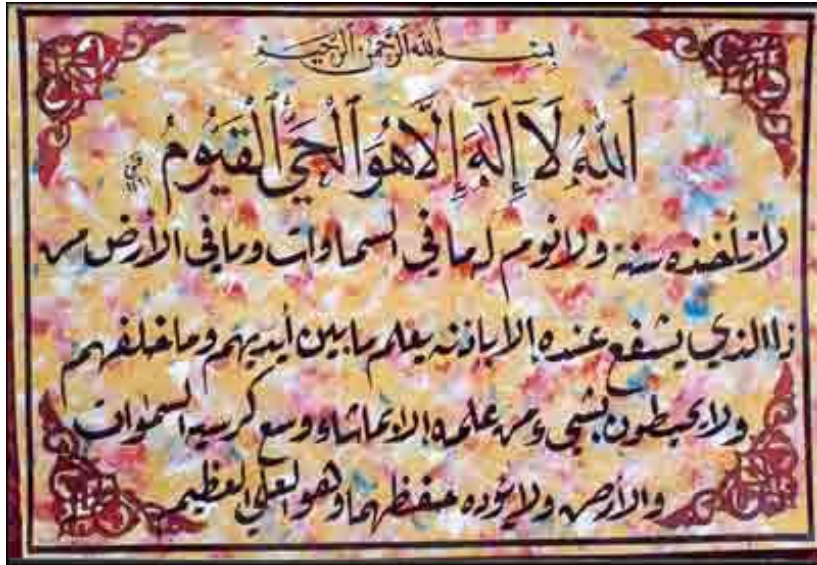 بسم الله الرحمن الرحيم
ٱللَّهُ لَآ إِلَٰهَ إِلَّا هُوَ ٱلْحَيُّ ٱلْقَيُّومُ
لا تأخذه سنة ولا نوم له ما في السماوات وما في الأرض من
ذا الذي يشفع عنده إلا بإذنه يعلم ما بين أيديهم وما خلفهم
ولا يحيطون بشيء من علمه إلا بما شاء وسع كرسيه السموات
والأرض ولا يؤده حفظهما وهو العلي العظيم